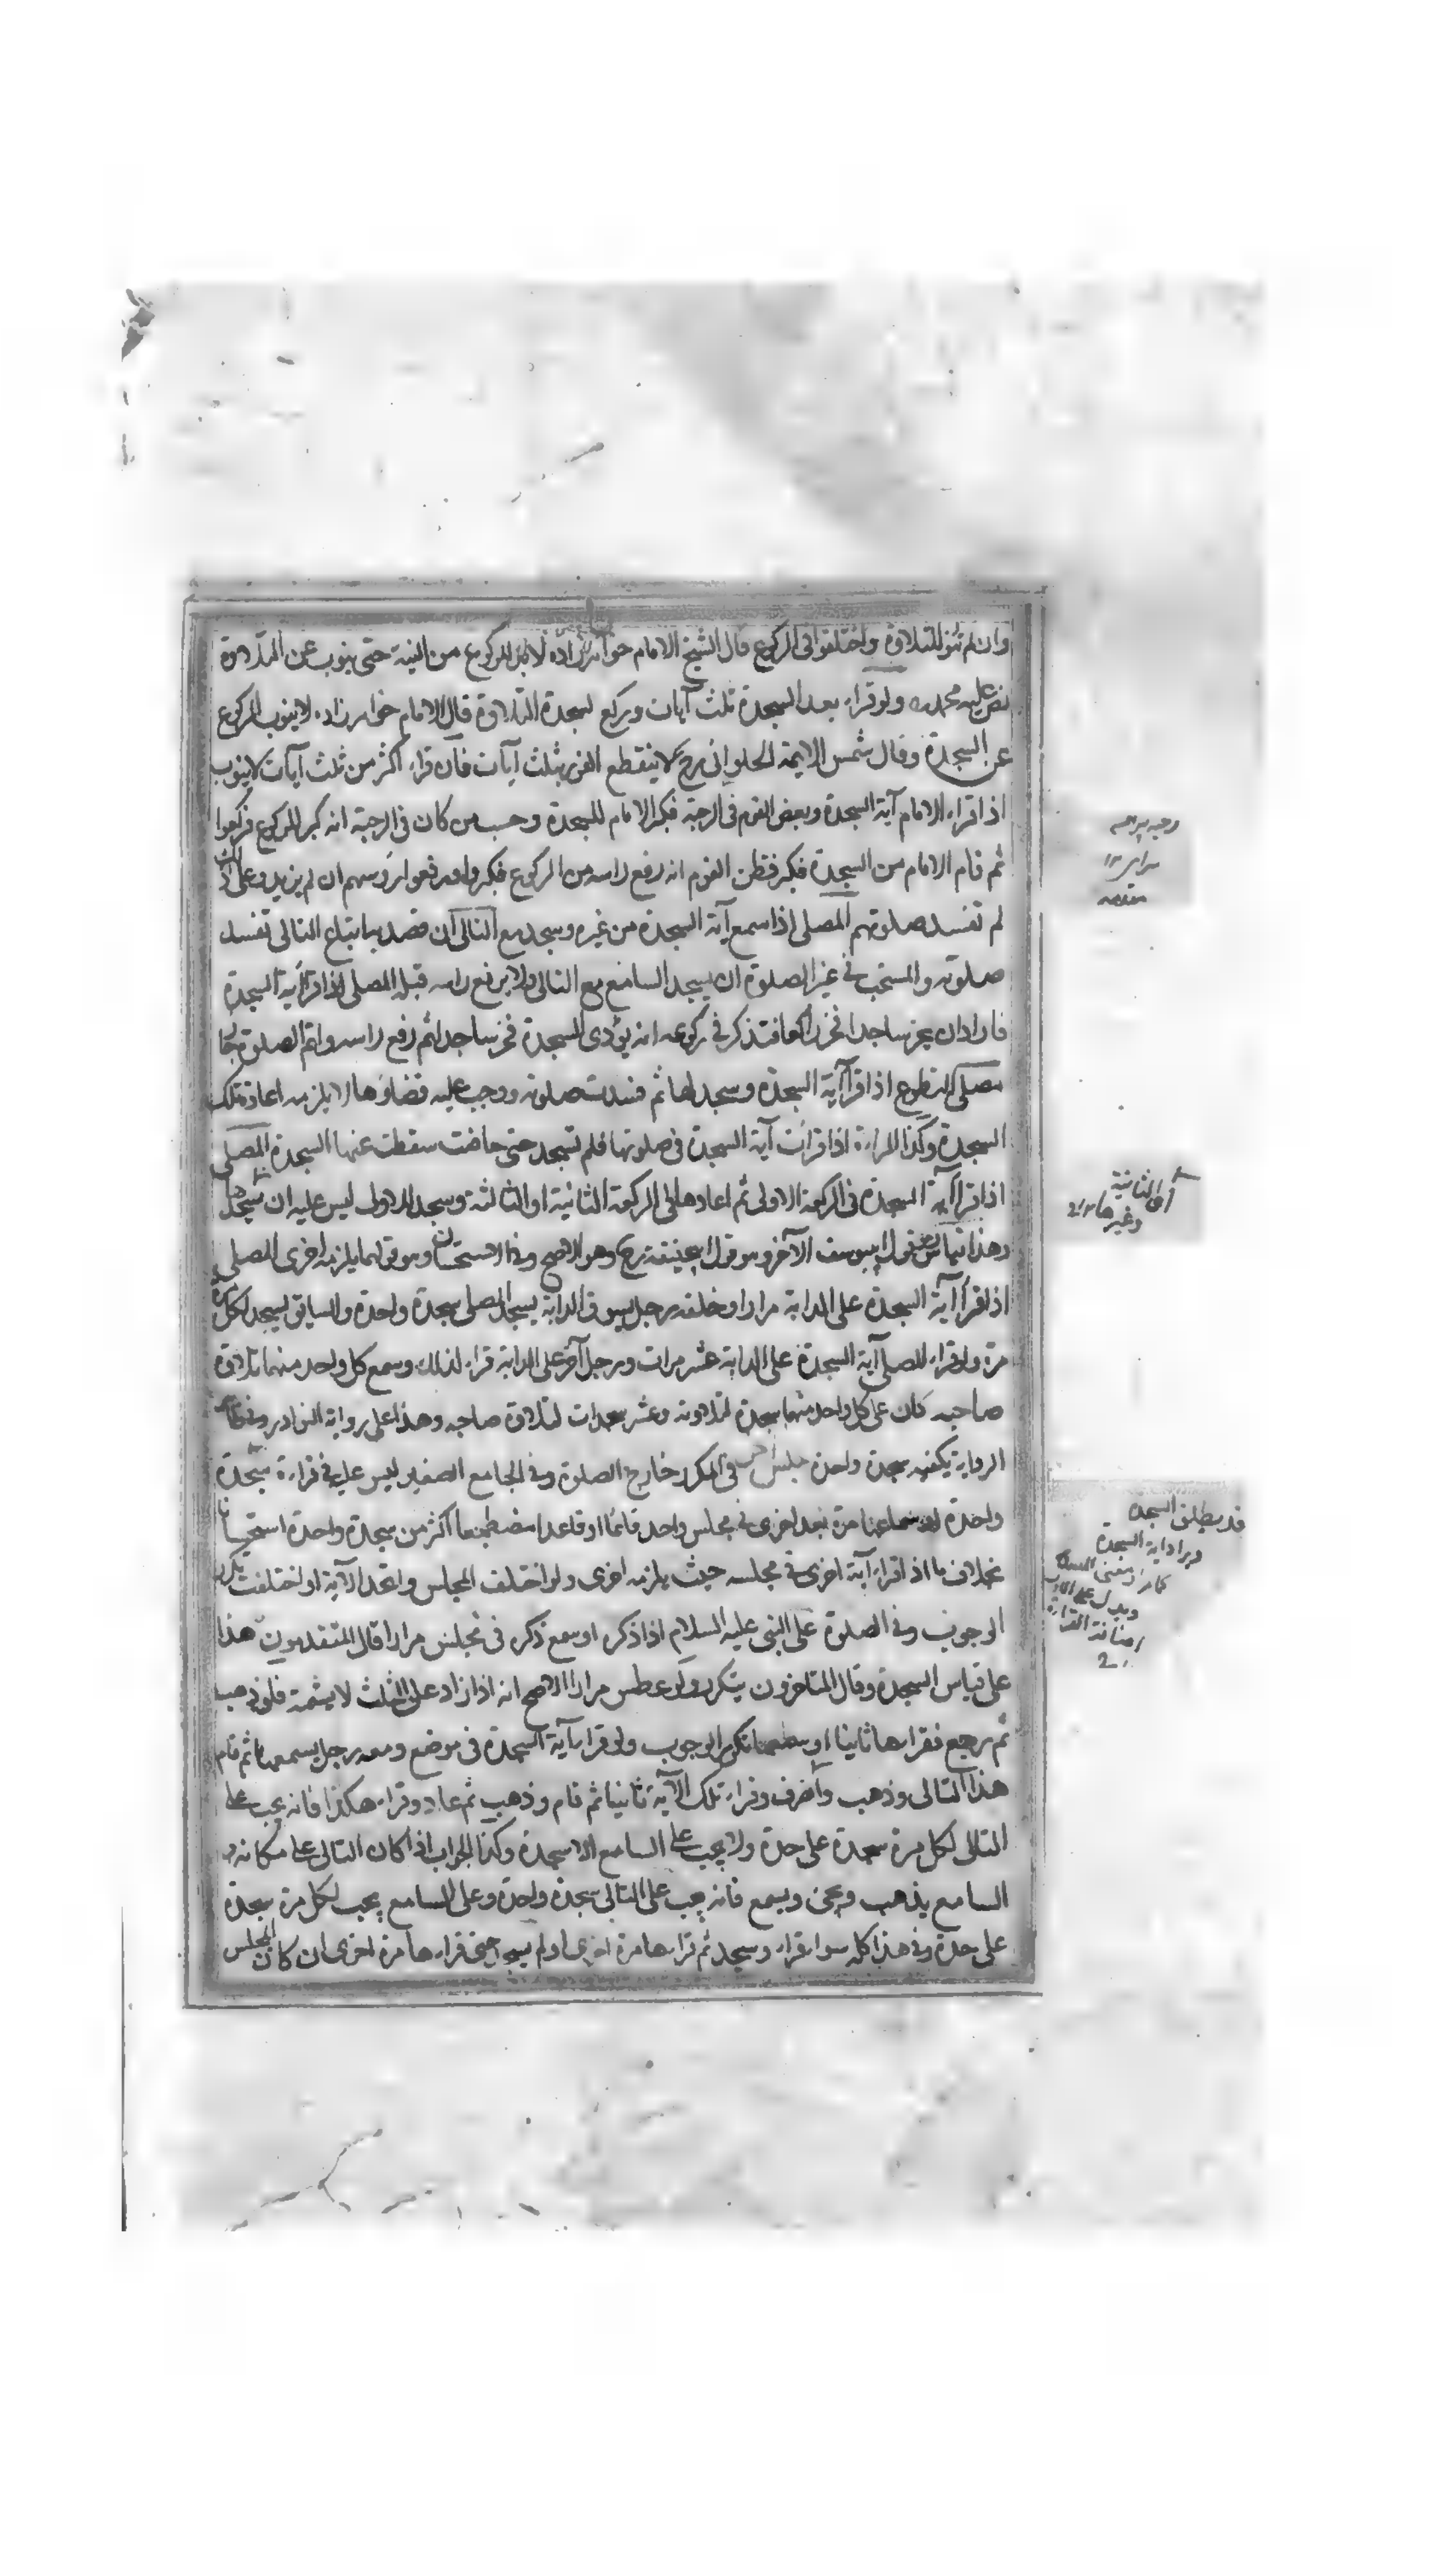 وان لم تنو للتلاوة واختلفوا فى الركوع قال الشيخ الامام خواهرزاده لا بد للركوع من النية حتى ينوب عن التلاوة
نص عليه محمد ولو قراء بعد السجدة ثلث آيات وركع لسجدة التلاوة قال الامام خواهرزاده لا ينوب الركوع
عن السجدة وقال شمس الايمة الحلوانى رح لا ينقطع الفور بثلث آيات فان قراء اكثر من ثلث آيات لا ينوب
اذا قراء الامام آية السجدة وبعض القوم فى الرحبة فكبر الامام للسجدة وحسب من كان فى الرحبة انه كبر للركوع فركعوا
ثم قام الامام من السجدة فكبر فظن القوم انه رفع راسه من الركوع فكبروا ورفعوا روسهم ان لم يزيدوا على ذلك
لم تفسد صلوتهم المصلى اذا سمع آية السجدة من غيره وسجد مع التالى ان قصد به اتباع التالى تفسد
صلوته والمستحب فى غير الصلوة ان يسجد السامع مع التالى ولا يرفع راسه قبله المصلى اذا قرأ آية السجدة
فاراد ان يخر ساجدا فخر راكعا فتذكر فى ركوعه انه يؤدى السجدة فخر ساجدا ثم رفع راسه واتم الصلوة
مصلى التطوع اذا قرأ آية السجدة وسجد لها ثم فسدت صلوته ووجب عليه قضاؤها لا يلزمه اعادة تلك
السجدة وكذا المراءة اذا قرات آية السجدة فى صلوتها فلم تسجد حتى حاضت سقطت عنها السجدة المصلى
اذا قرأ آية السجدة فى الركعة الاولى ثم اعادها فى الركعة الثانية او الثالثة وسجد للاولى ليس عليه ان يسجدها
وهذا قياس قول ابيوسف الآخر وهو قول ابيحنيفة رح وهو الاصح وفى الاستحسان وهو قولهما يلزمه اخرى المصلى
اذا قرأ آية السجدة على الدابة مرارا وخلفه رجل يسوق الدابة يسجد المصلى سجدة واحدة والسايق يسجد لكل
مرة ولو قراء المصلى آية السجدة على الدابة عشر مرات ورجل آخر على الدابة قراء كذلك وسمع كل واحد منهما تلاوة
صاحبه كان على كل واحد منهما سجدة لتلاوته وعشر سجدات لتلاوة صاحبه وهذا على رواية النوادر وفى ظاهر
الرواية يكفيه سجدة واحدة فى المكرر خارج الصلوة وفى الجامع الصغير ليس عليه فى قراءة سجدة
واحدة او سماعها مرة بعد اخرى فى مجلس واحد قائما او قاعدا مضطجعا اكثر من سجدة واحدة استحسانا
بخلاف ما اذا قراء آية اخرى فى مجلسه حيث يلزمه اخرى ولو اختلف المجلس واتحد الآية او اختلفت تكرر
الوجوب وفى الصلوة على النبى عليه السلام اذا ذكر او سمع ذكره فى مجلس مرارا قال المتقدمون هذا
على قياس السجدة وقال المتاخرون يتكرر ولو عطس مرارا الاصح انه اذا زاد على الثلث لا يشمته فلو ذهب
ثم رجع فقراءها ثانيا او سمعها تكرر الوجوب ولو قراء آية السجدة فى موضع ومعه رجل يسمعها ثم قام
هذا التالى وذهب وانصرف وقراء تلك الآية ثانيا ثم قام وذهب ثم عاد وقراء هكذا فانه يجب على
التالى لكل مرة سجدة على حدة ولا يجب على السامع الا سجدة وكذا الجواب اذا كان التالى على مكانه و
السامع يذهب ويجئ ويسمع فانه يجب على التالى سجدة واحدة وعلى السامع يجب لكل مرة سجدة
على حدة وفى هذا كله سواء قراء وسجد ثم قراءها مرة اخرى او لم يسجد حتى قراءها مرة اخرى ان كان المجلس
اى الثانية
وغيرها
قد يطلق السجدة
ويراد آية السجدة